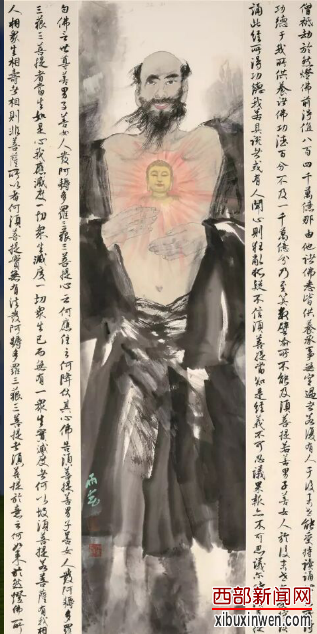 僧祇劫於然燈佛前得值八百四千萬億那由他諸佛悉皆供養承事無空過者若復有人於後末世能受持讀誦
功德於我所供養諸佛功德百分不及一千萬億分乃至算數譬喻所不能及須菩提若善男子善女人於後末世
誦此經所得功德我若具說者或有人聞心則狂亂狐疑不信須菩提當知是經義不可思議果報亦不可思議爾時
白佛言世尊善男子善女人發阿耨多羅三藐三菩提心云何應住云何降伏其心佛告須菩提善男子善女人發阿耨多羅
三藐三菩提者當生如是心我應滅度一切眾生滅度一切眾生已而無有一眾生實滅度者何以故須菩提若菩薩有我相
人相眾生相壽者相則非菩薩所以者何須菩提實無有法發阿耨多羅三藐三菩提者須菩提於意云何如來於然燈佛所
西部新闻网
xibuxinwen.com